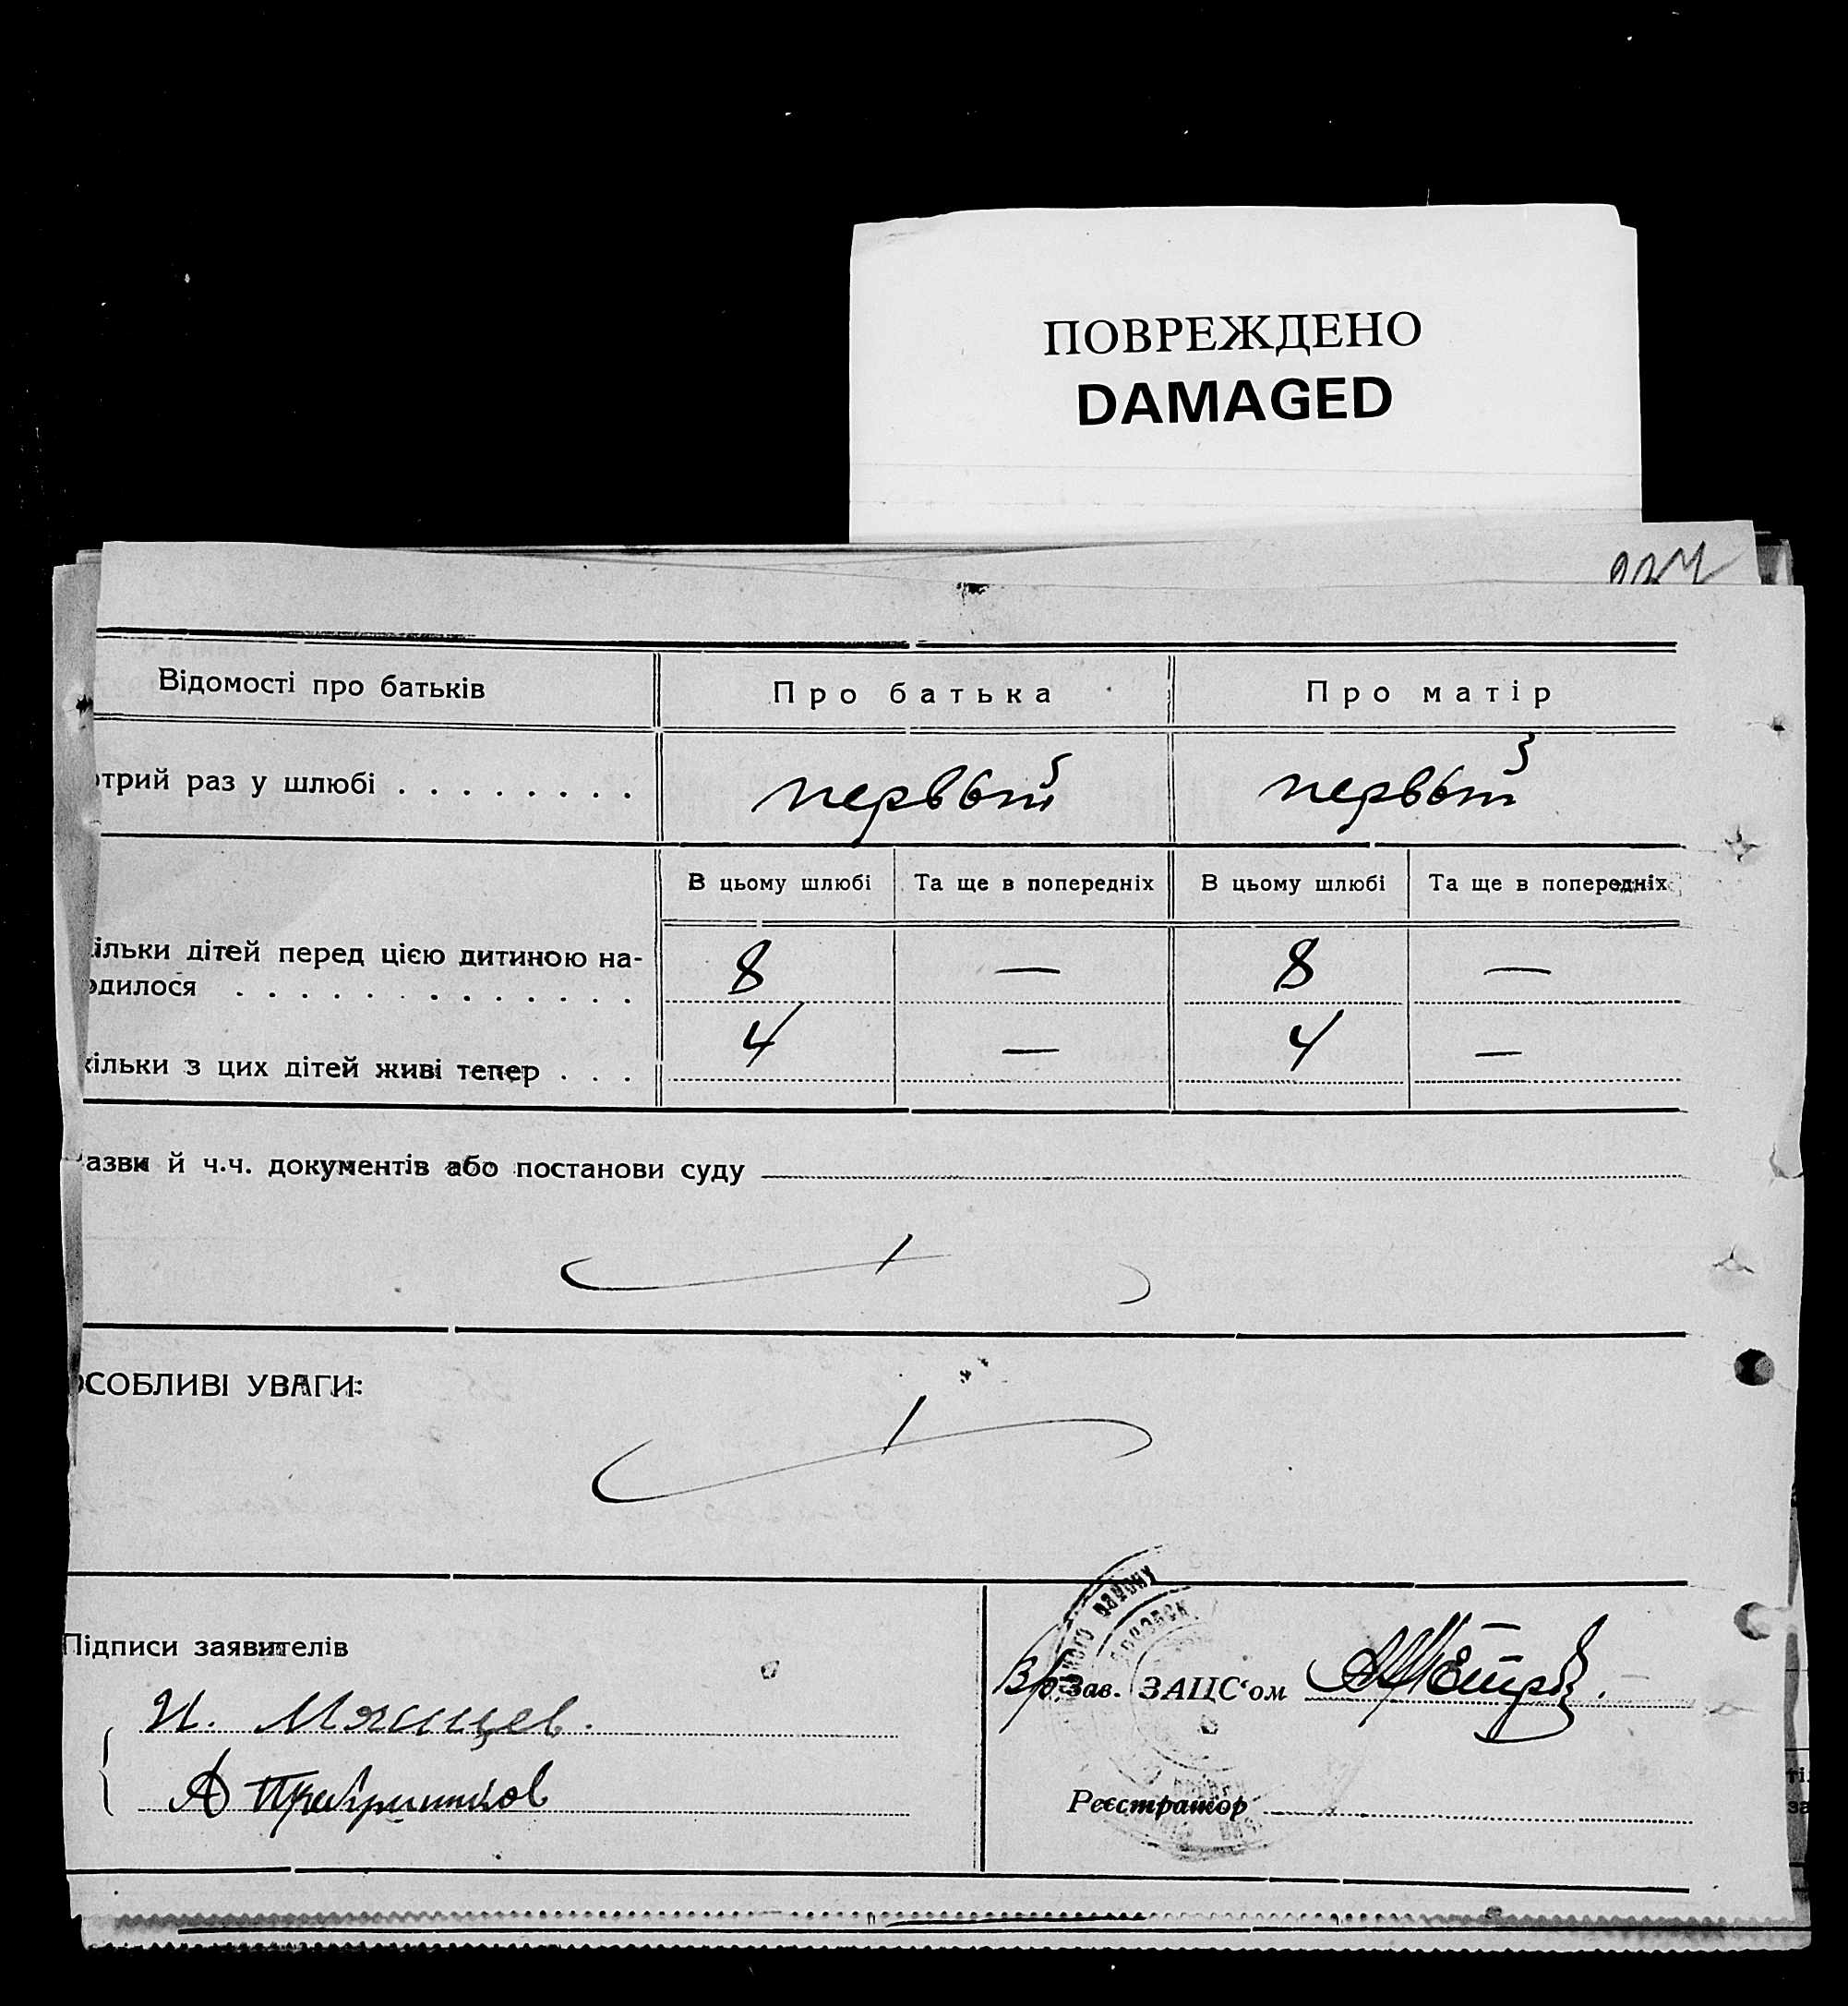 ПОВРЕЖДЕНО
DAMAGED
Відомості про батьків
Про батька
Про матір
отрий раз у шлюбі . . . . . . . .
первый
первый
В цьому шлюбі
Та ще в попередніх
В цьому шлюбі
Та ще в попередніх
ільки дітей перед цією дитиною на-
одилося . . . . . . . . . . . . .
8
—
8
—
кільки з цих дітей живі тепер . . .
4
—
4
—
азви й ч.ч. документів або постанови суду
ОСОБЛИВІ УВАГИ:
Підписи заявителів
В/о Зав. ЗАЦС‘ом
И. Мясищев.
А
Реєстратор